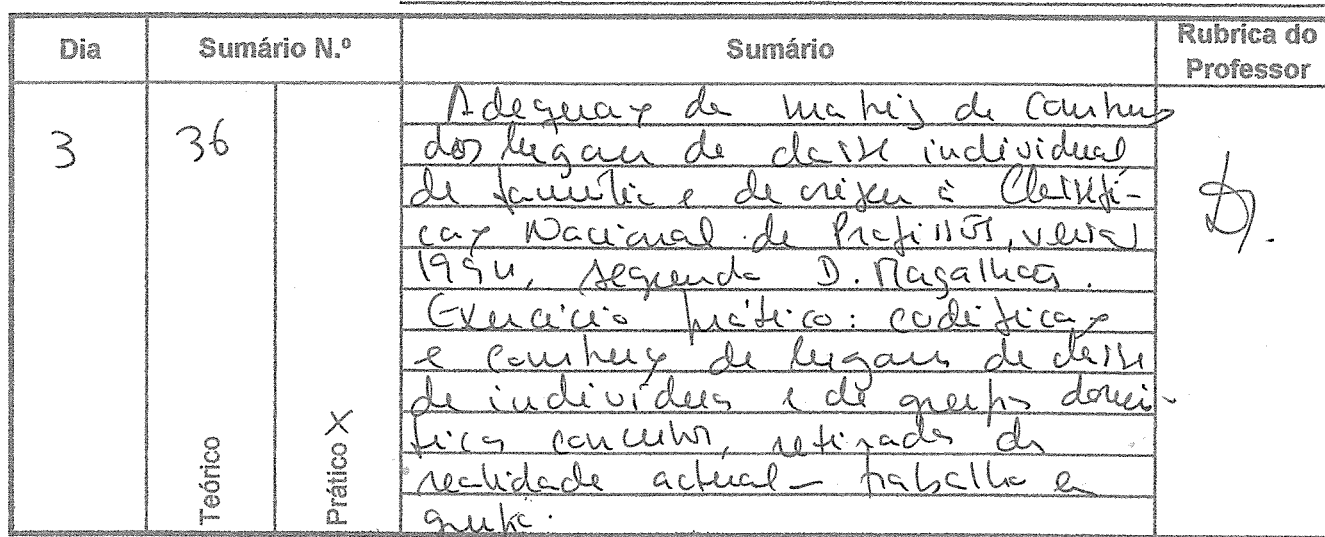 Dia Sumário N.º Sumário Rubrica do Professor
3 36 Teórico Prático X
Adequação da matriz de construção
dos lugares de classe individual
de família e de origem à Classifi-
cação Nacional de Profissões, versão
1994, segundo D. Magalhães.
Exercício prático: codificação
e construção de lugares de classe
de indivíduos e de grupos domés-
ticos concretos, retirados da
realidade actual - trabalho em
grupo.